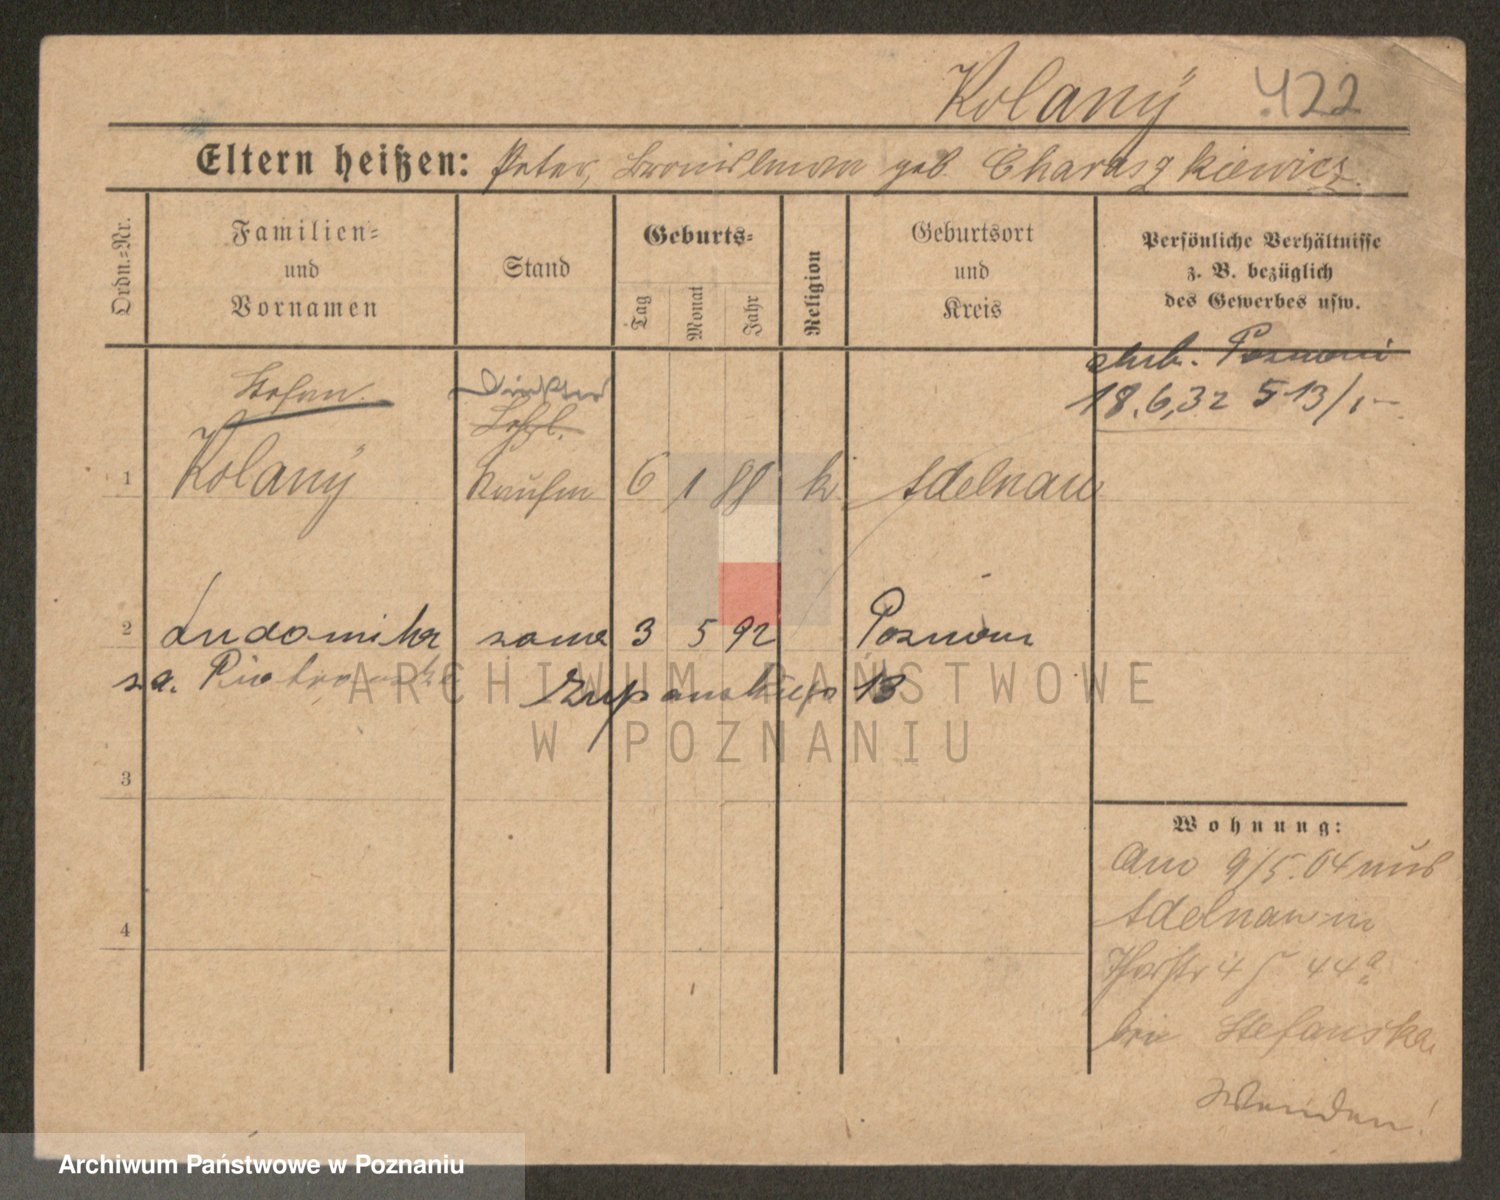 Kolany 422
Eltern heißen: Peter, Bronislawa geb. Charaszkiewicz.
Ordn.-Nr.
Familien-
und
Vornamen
Stand
Geburts-
Tag
Monat
Jahr
Religion
Geburtsort
und
Kreis
Persönliche Verhältnisse
z. B. bezüglich
des Gewerbes usw.
ślub. Poznań
18.6,32 513/1-
Stefan.
1 Kolany Kaufm 6 1 88 k. Adelnau
2 Ludomika zam 3 5 92 Poznań
3
4
za. 13
ARCHIWUM PAŃSTWOWE
W POZNANIU
Wohnung:
9/5.04 aus
Adelnau in
44a
bei Stefanska
Wenden!
Archiwum Państwowe w Poznaniu